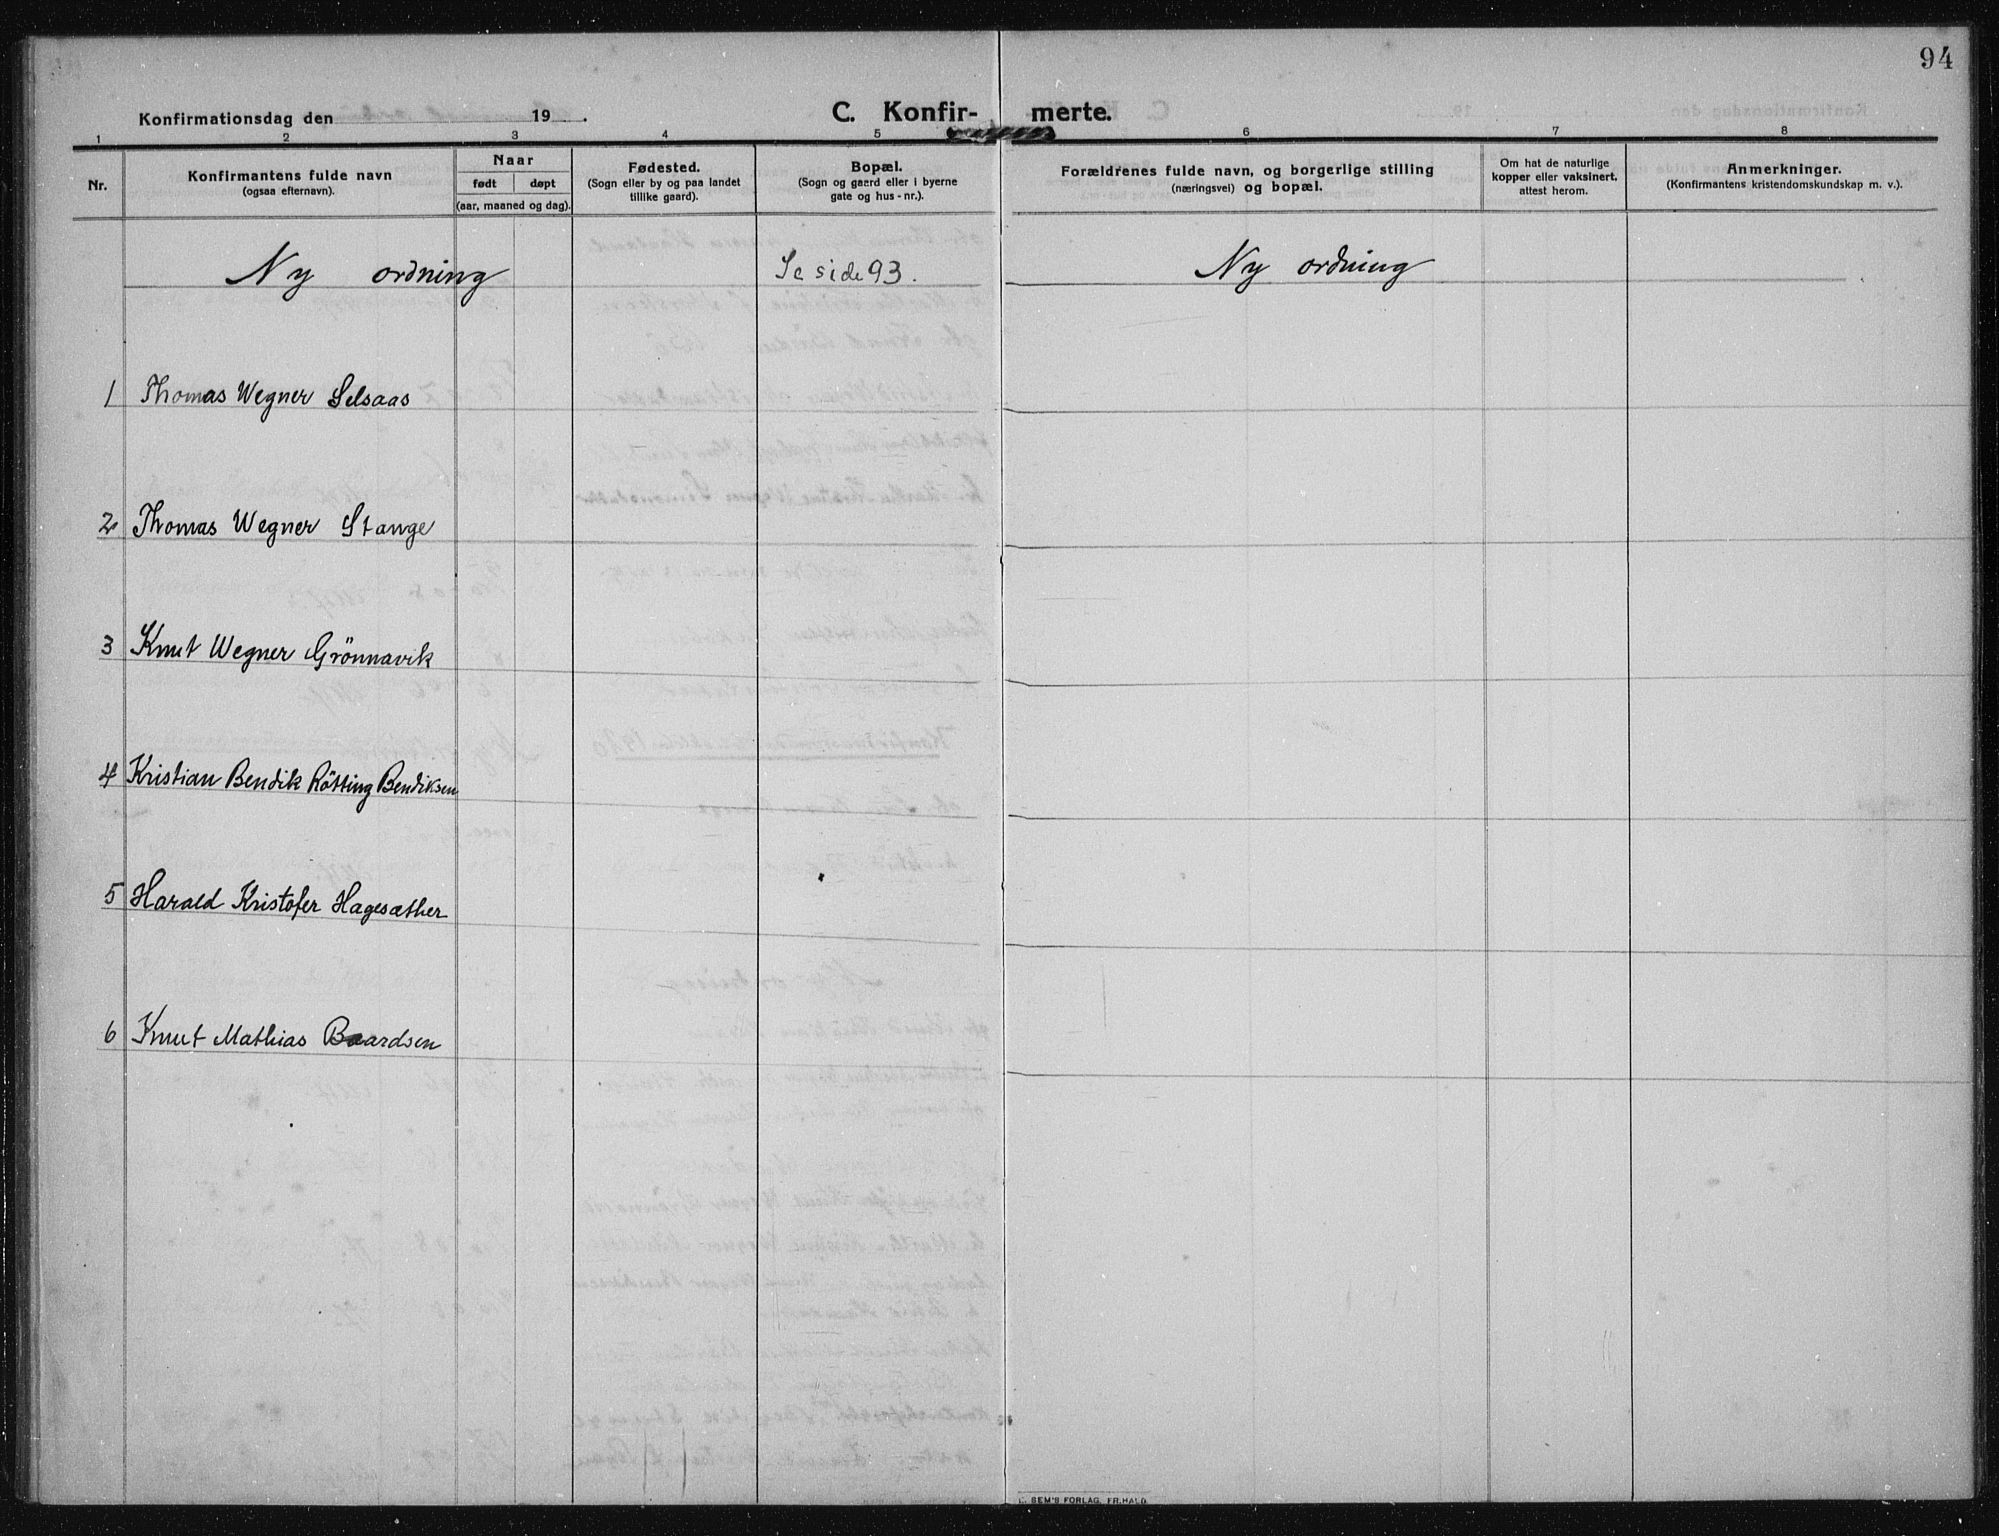 94
Konfirmationsdag den 19 .
C. Konfir- merte.
1 2 3 4 5 6 7 8
Nr.
Konfirmantens fulde navn
(ogsaa efternavn).
Naar
født døpt
(aar, maaned og dag).
Fødested.
(Sogn eller by og paa landet
tillike gaard).
Bopæl.
(Sogn og gaard eller i byerne
gate og hus-nr.).
Forældrenes fulde navn, og borgerlige stilling
(næringsvei) og bopæl.
Om hat de naturlige
kopper eller vaksinert,
attest herom.
Anmerkninger.
(Konfirmantens kristendomskundskap m. v.).
Ny ordning Se side 93. Ny ordning
1 Thomas Wegner Selsaas
2 Thomas Wegner Stange
3 Knut Wegner Grönnavik
4 Kristian Bendik Rötting Bendiksen
5 Harald Kristofer Hagesæther
6 Knut Mathias Baardsen
SEM'S FORLAG, FR.HALD